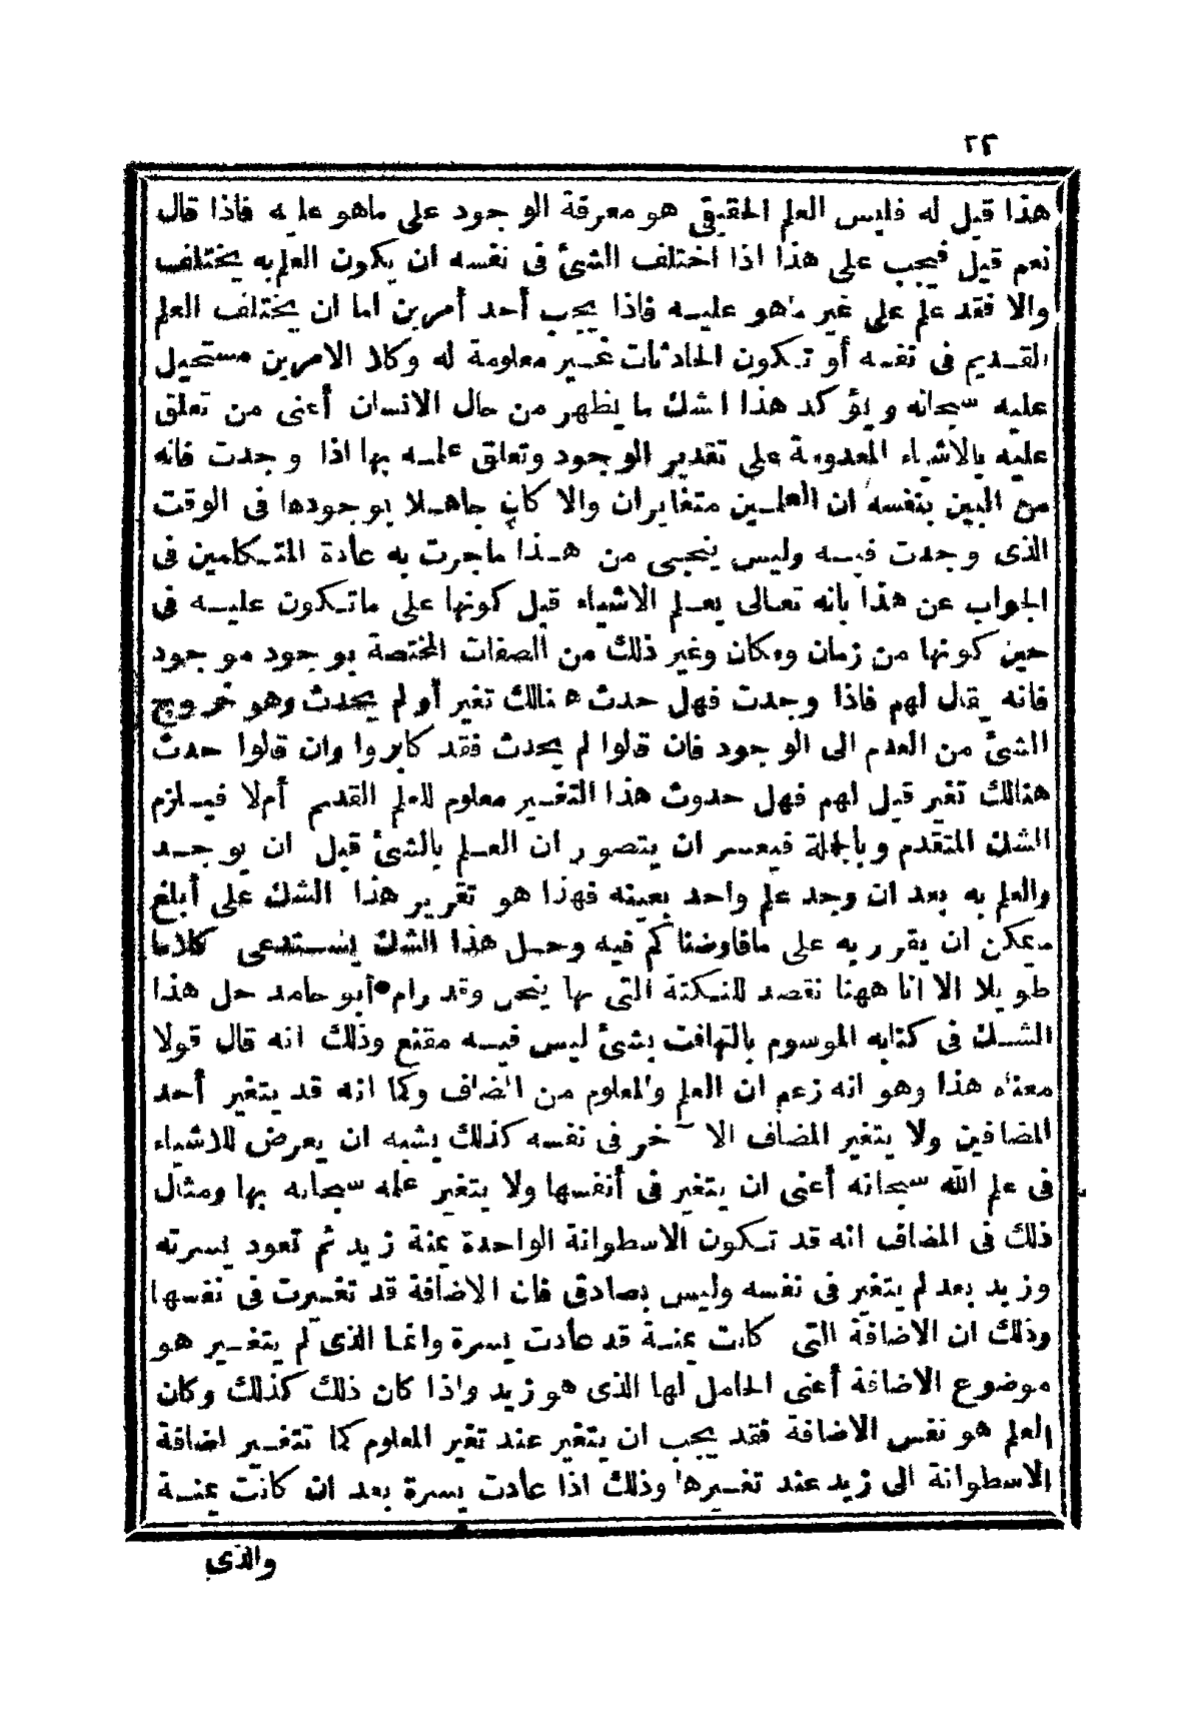 ٢٢
هذا قيل له فليس العلم الحقيقي هو معرفة الوجود على ماهو عليه فاذا قال
نعم قيل فيجب على هذا اذا اختلف الشئ فى نفسه ان يكون العلم به يختلف
والا فقد علم على غير ماهو عليه فاذا يجب أحد أمرين اما ان يختلف العلم
القديم فى نفسه أو تكون الحادثات غير معلومة له وكلا الامرين مستحيل
عليه سبحانه ويؤكد هذا الشك ما يظهر من حال الانسان أعنى من تعلق
علمه بالاشياء المعدومة على تقدير الوجود وتعلق علمه بها اذا وجدت فانه
من البين بنفسه ان العلمين متغايران والا كان جاهلا بوجودها فى الوقت
الذى وجدت فيه وليس ينجى من هذا ماجرت به عادة المتكلمين فى
الجواب عن هذا بانه تعالى يعلم الاشياء قبل كونها على ماتكون عليه فى
حين كونها من زمان ومكان وغير ذلك من الصفات المختصة بوجود موجود
فانه يقال لهم فاذا وجدت فهل حدث هنالك تغير أو لم يحدث وهو خروج
الشئ من العدم الى الوجود فان قالوا لم يحدث فقد كابروا وان قالوا حدث
هنالك تغير قيل لهم فهل حدوث هذا التغير معلوم للعلم القديم أم لا فيلزم
الشك المتقدم وبالجملة فيعسر ان يتصور ان العلم بالشئ قبل ان يوجد
والعلم به بعد ان وجد علم واحد بعينه فهذا هو تقرير هذا الشك على أبلغ
مايمكن ان يقرر به على مافاوضناكم فيه وحل هذا الشك يستدعى كلاما
طويلا الا انا ههنا نقصد للنكتة التى بها ينحل وقد رام أبو حامد حل هذا
الشك فى كتابه الموسوم بالتهافت بشئ ليس فيه مقنع وذلك انه قال قولا
معناه هذا وهو انه زعم ان العلم والمعلوم من المضاف وكما انه قد يتغير أحد
المضافين ولا يتغير المضاف الآخر فى نفسه كذلك يشبه ان يعرض للاشياء
فى علم الله سبحانه أعنى ان يتغير فى أنفسها ولا يتغير علمه سبحانه بها ومثال
ذلك فى المضاف انه قد تكون الاسطوانة الواحدة يمنة زيد ثم تعود يسرته
وزيد بعد لم يتغير فى نفسه وليس بصادق فان الاضافة قد تغيرت فى نفسها
وذلك ان الاضافة التى كانت يمنة قد عادت يسرة وانما الذى لم يتغير هو
موضوع الاضافة أعنى الحامل لها الذى هو زيد واذا كان ذلك كذلك وكان
العلم هو نفس الاضافة فقد يجب ان يتغير عند تغير المعلوم كما تتغير اضافة
الاسطوانة الى زيد عند تغيرها وذلك اذا عادت يسرة بعد ان كانت يمنة
والذى